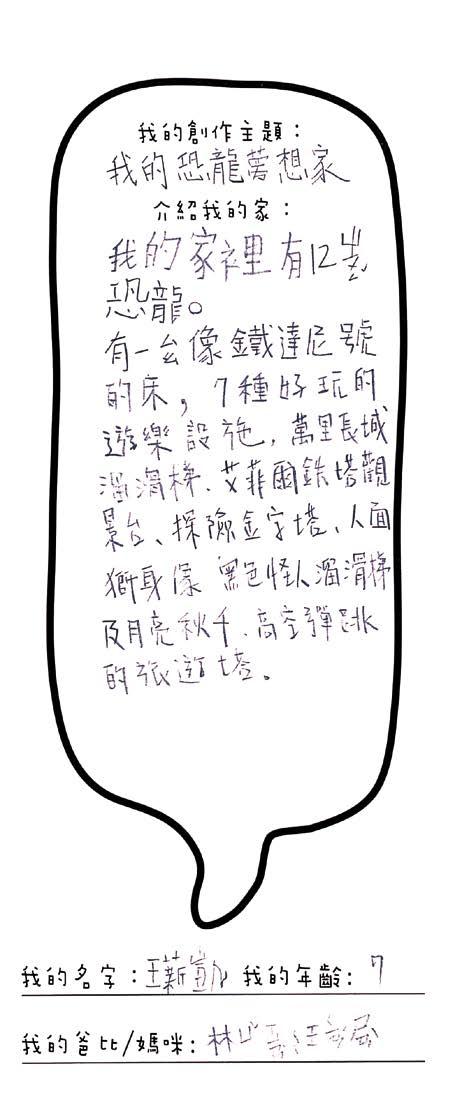 我的創作主題：
我的恐龍夢想家
介紹我的家：
我的家裡有12隻
恐龍。
有一台像鐵達尼號
的床，7種好玩的
遊樂設施，萬里長城
溜滑梯、艾菲爾鉄塔觀
景台、探險金字塔、人面
獅身像 黑色怪人溜滑梯
及月亮秋千、高空彈跳
的旅遊塔。
我的名字：王薪凱 我的年齡：7
我的爸比/媽咪：林